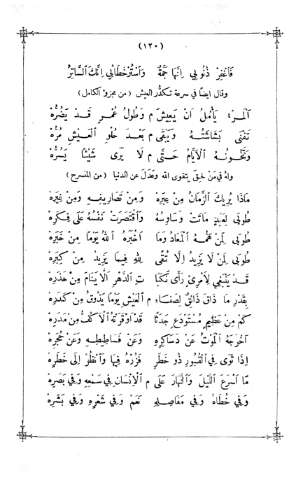 (١٢٠)
فَاغْفِرْ ذُنُوبِي إِنَّهَا جَمَّةٌ وَاسْتُرْ خَطَائِي إِنَّكَ السَّاتِرُ
وقال ايضًا في سرعة تكدُّر العيش (من مجزوّ الكامل)
الْمَرْءُ يَأْمُلُ أَنْ يَعِيشَ م وَطُولُ عُمْرٍ قَدْ يَضُرُّهْ
تَفْنَى بَشَاشَتُهُ وَيَبْقَى م بَعْدَ حُلْوِ الْعَيْشِ مُرُّهْ
وَتَخُونُهُ الْأَيَّامُ حَتَّى م لَا يَرَى شَيْئًا يَسُرُّهْ
وله في مَن لحق بتقوى الله وعَدَل عن الدنيا (من المنسرح)
مَاذَا يُرِيكَ الزَّمَانُ مِنْ عِبَرِهْ وَمِنْ تَصَارِيفِهِ وَمِنْ غِيَرِهْ
طُوبَى لِعَبْدٍ مَاتَتْ وَسَاوِسُهُ وَاقْتَصَرَتْ نَفْسُهُ عَلَى فِكَرِهْ
طُوبَى لِمَنْ هَمُّهُ الْمَعَادُ وَمَا أَخْبَرَهُ اللهُ يَوْمًا مِنْ خَبَرِهْ
طُوبَى لِمَنْ لَا يَزِيدُ إِلَّا تُقًى لِلهِ فِيمَا يَزِيدُ مِنْ كِبَرِهْ
قَدْ يَنْبَغِي لِامْرِئٍ رَأَى نَكَبَا تِ الدَّهْرِ أَلَّا يَنَامَ مِنْ حَذَرِهْ
بِقَدْرِ مَا ذَاقَ ذَائِقٌ لِصَفَاءِ م الْعَيْشِ يَوْمًا يَذُوقُ مِنْ كَدَرِهْ
كَمْ مِنْ عَظِيمٍ مُسْتَوْدَعٍ جَدَثًا قَدْ أَوْقَرَتْهُ الْأَكُفُّ مِنْ مَدَرِهْ
أَخْرَجَهُ الْمَوْتُ عَنْ دَسَاكِرِهِ وَعَنْ فَسَاطِيطِهِ وَعَنْ حُجَرِهْ
إِذَا ثَوَى فِي الْقُبُورِ ذُو خَطَرٍ فَزُرْهُ فِيهَا وَانْظُرْ إِلَى خَطَرِهْ
مَا أَسْرَعَ اللَّيْلَ وَالنَّهَارَ عَلَى م الْإِنْسَانِ فِي سَمْعِهِ وَفِي بَصَرِهْ
وَفِي خُطَاهُ وَفِي مَفَاصِلِهِ نَعَمْ وَفِي شَعْرِهِ وَفِي بَشَرِهْ